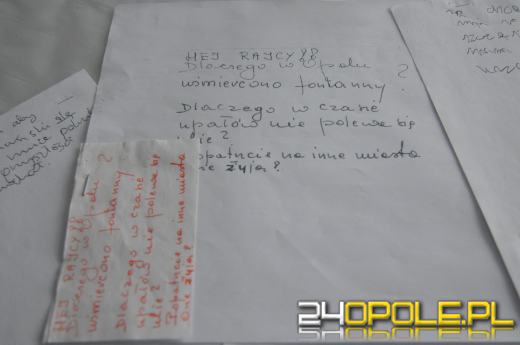 HEJ RAJCY??
Dlaczego w Opolu ?
uśmiercono fontanny
Dlaczego w czasie
upałów nie polewa się
ulic?
Popatrzcie na inne miasta
one żyją?
HEJ RAJCY??
Dlaczego w Opolu ?
uśmiercono fontanny
Dlaczego w czasie
upałów nie polewa się
ulic?
Popatrzcie na inne miasta
one żyją?
24OPOLE.PL